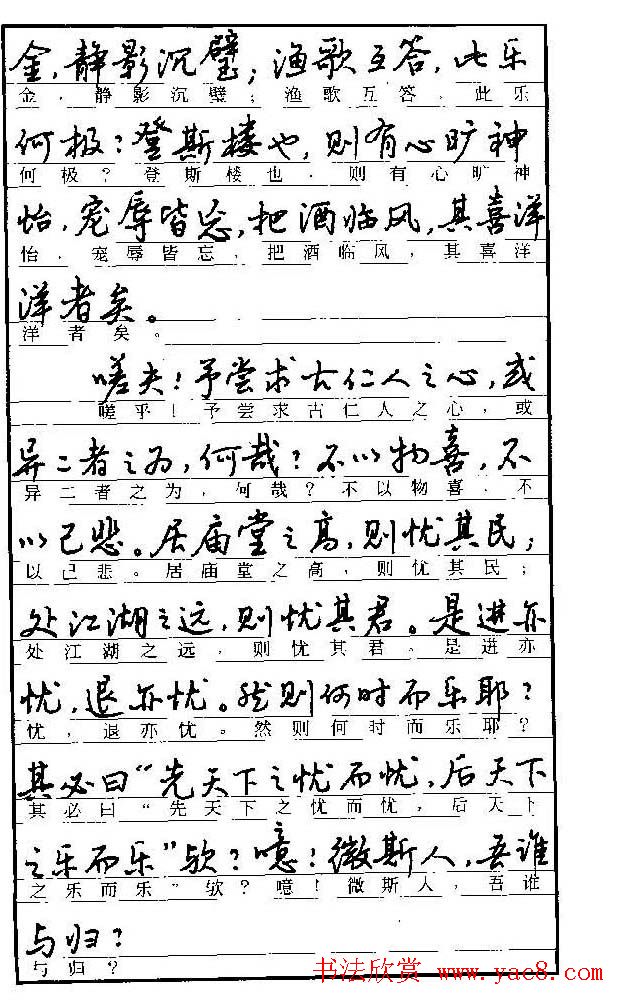 金，静影沉璧；渔歌互答，此乐
金，静影沉璧；渔歌互答，此乐
何极？登斯楼也，则有心旷神
何极？登斯楼也，则有心旷神
怡，宠辱皆忘，把酒临风，其喜洋
怡，宠辱皆忘，把酒临风，其喜洋
洋者矣。
洋者矣。
嗟夫！予尝求古仁人之心，或
嗟乎！予尝求古仁人之心，或
异二者之为，何哉？不以物喜，不
异二者之为，何哉？不以物喜，不
以己悲。居庙堂之高，则忧其民；
以己悲。居庙堂之高，则忧其民；
处江湖之远，则忧其君。是进亦
处江湖之远，则忧其君。是进亦
忧，退亦忧。然则何时而乐耶？
忧，退亦忧。然则何时而乐耶？
其必曰“先天下之忧而忧，后天下
其必曰“先天下之忧而忧，后天下
之乐而乐”欤？噫！微斯人，吾谁
之乐而乐”欤？噫！微斯人，吾谁
与归？
与归？
书法欣赏 www.yac8.com